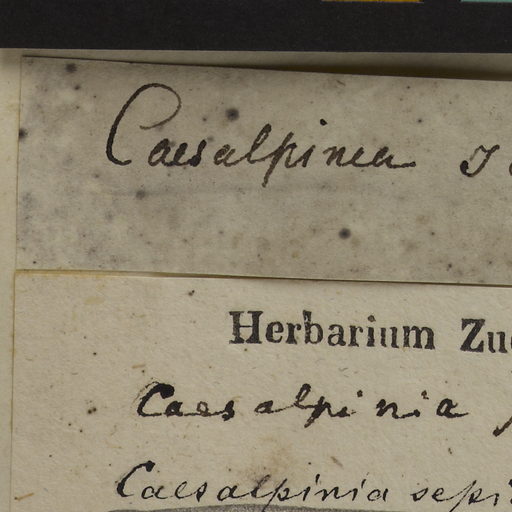 Caesalpinea
Herbarium
Caesalpinia
Caesalpinia